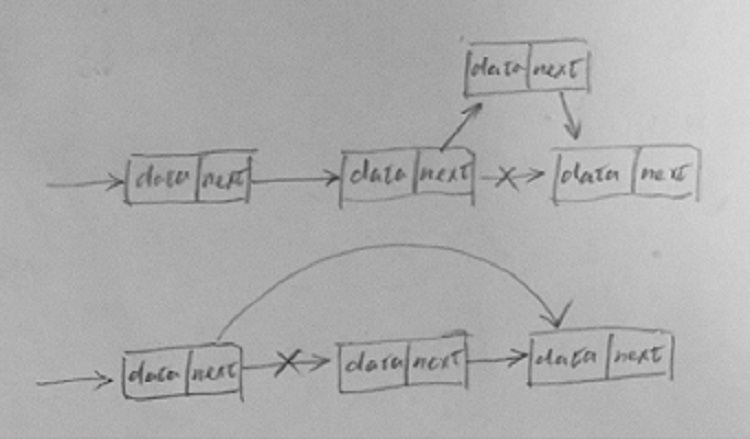 data next
data next data next data next
data next data next data next